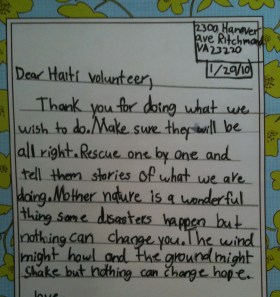 2300 Hanover
ave Ritchmond
VA 23220
1/20/10
Dear Haiti volunteer,
Thank you for doing what we
wish to do. Make sure they will be
all right. Rescue one by one and
tell them stories of what we are
doing. Mother nature is a wonderful
thing some disasters happen but
nothing can change you. The wind
might howl and the ground might
shake but nothing can change hope.
love